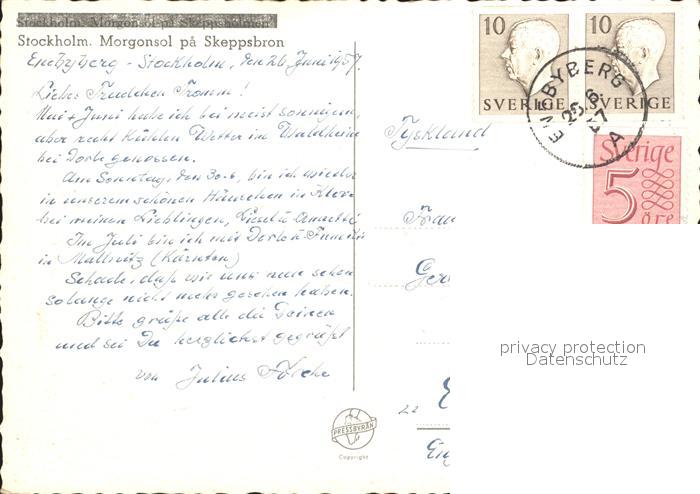 Stockholm. Morgonsol på Skeppsbron
Stockholm. Morgonsol på Skeppsbron
Enebyberg - Stockholm, den 26. Juni 1957.
Liebes Trudchen Fromm!
Mai + Juni habe ich bei meist sonnigem,
aber recht kühlen Wetter im Waldheim
bei Dorle genossen.
Am Sonntag, den 30.6. bin ich wieder
in unserem schönen Häuschen in
bei meinen Lieblingen, Liesel u.
Im Juli bin ich mit Dorle u. Familie
in Mallnitz (Kärnten)
Schade, daß wir uns nun schon
solange nicht mehr gesehen haben.
Bitte grüße alle die Deinen
und sei Du herzlichst gegrüßt
von Julius
Tyskland
Frau
Ger
22
PRESSBYRÅN
Copyright
10
SVERIGE
10
SVERIGE
ENEBYBERG
25.6.57
A
Sverige
5
öre
privacy protection
Datenschutz